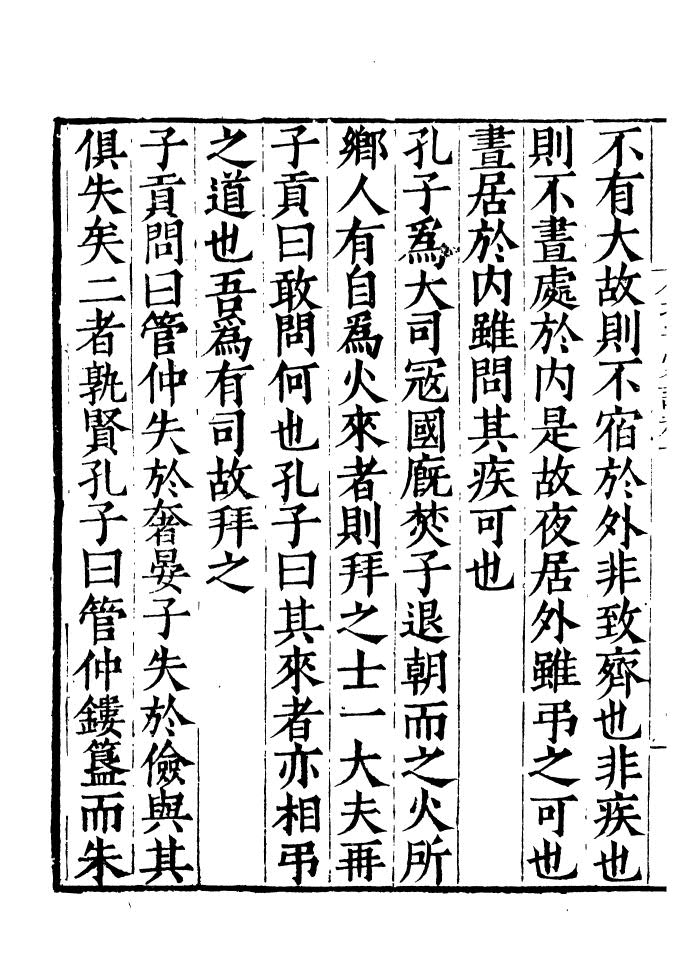 不有大故則不宿於外非致齊也非疾也
則不晝處於内是故夜居外雖弔之可也
晝居於内雖問其疾可也
孔子爲大司寇國廐焚子退朝而之火所
鄉人有自爲火來者則拜之士一大夫再
子貢曰敢問何也孔子曰其來者亦相弔
之道也吾爲有司故拜之
子貢問曰管仲失於奢晏子失於儉與其
俱失矣二者孰賢孔子曰管仲鏤簋而朱